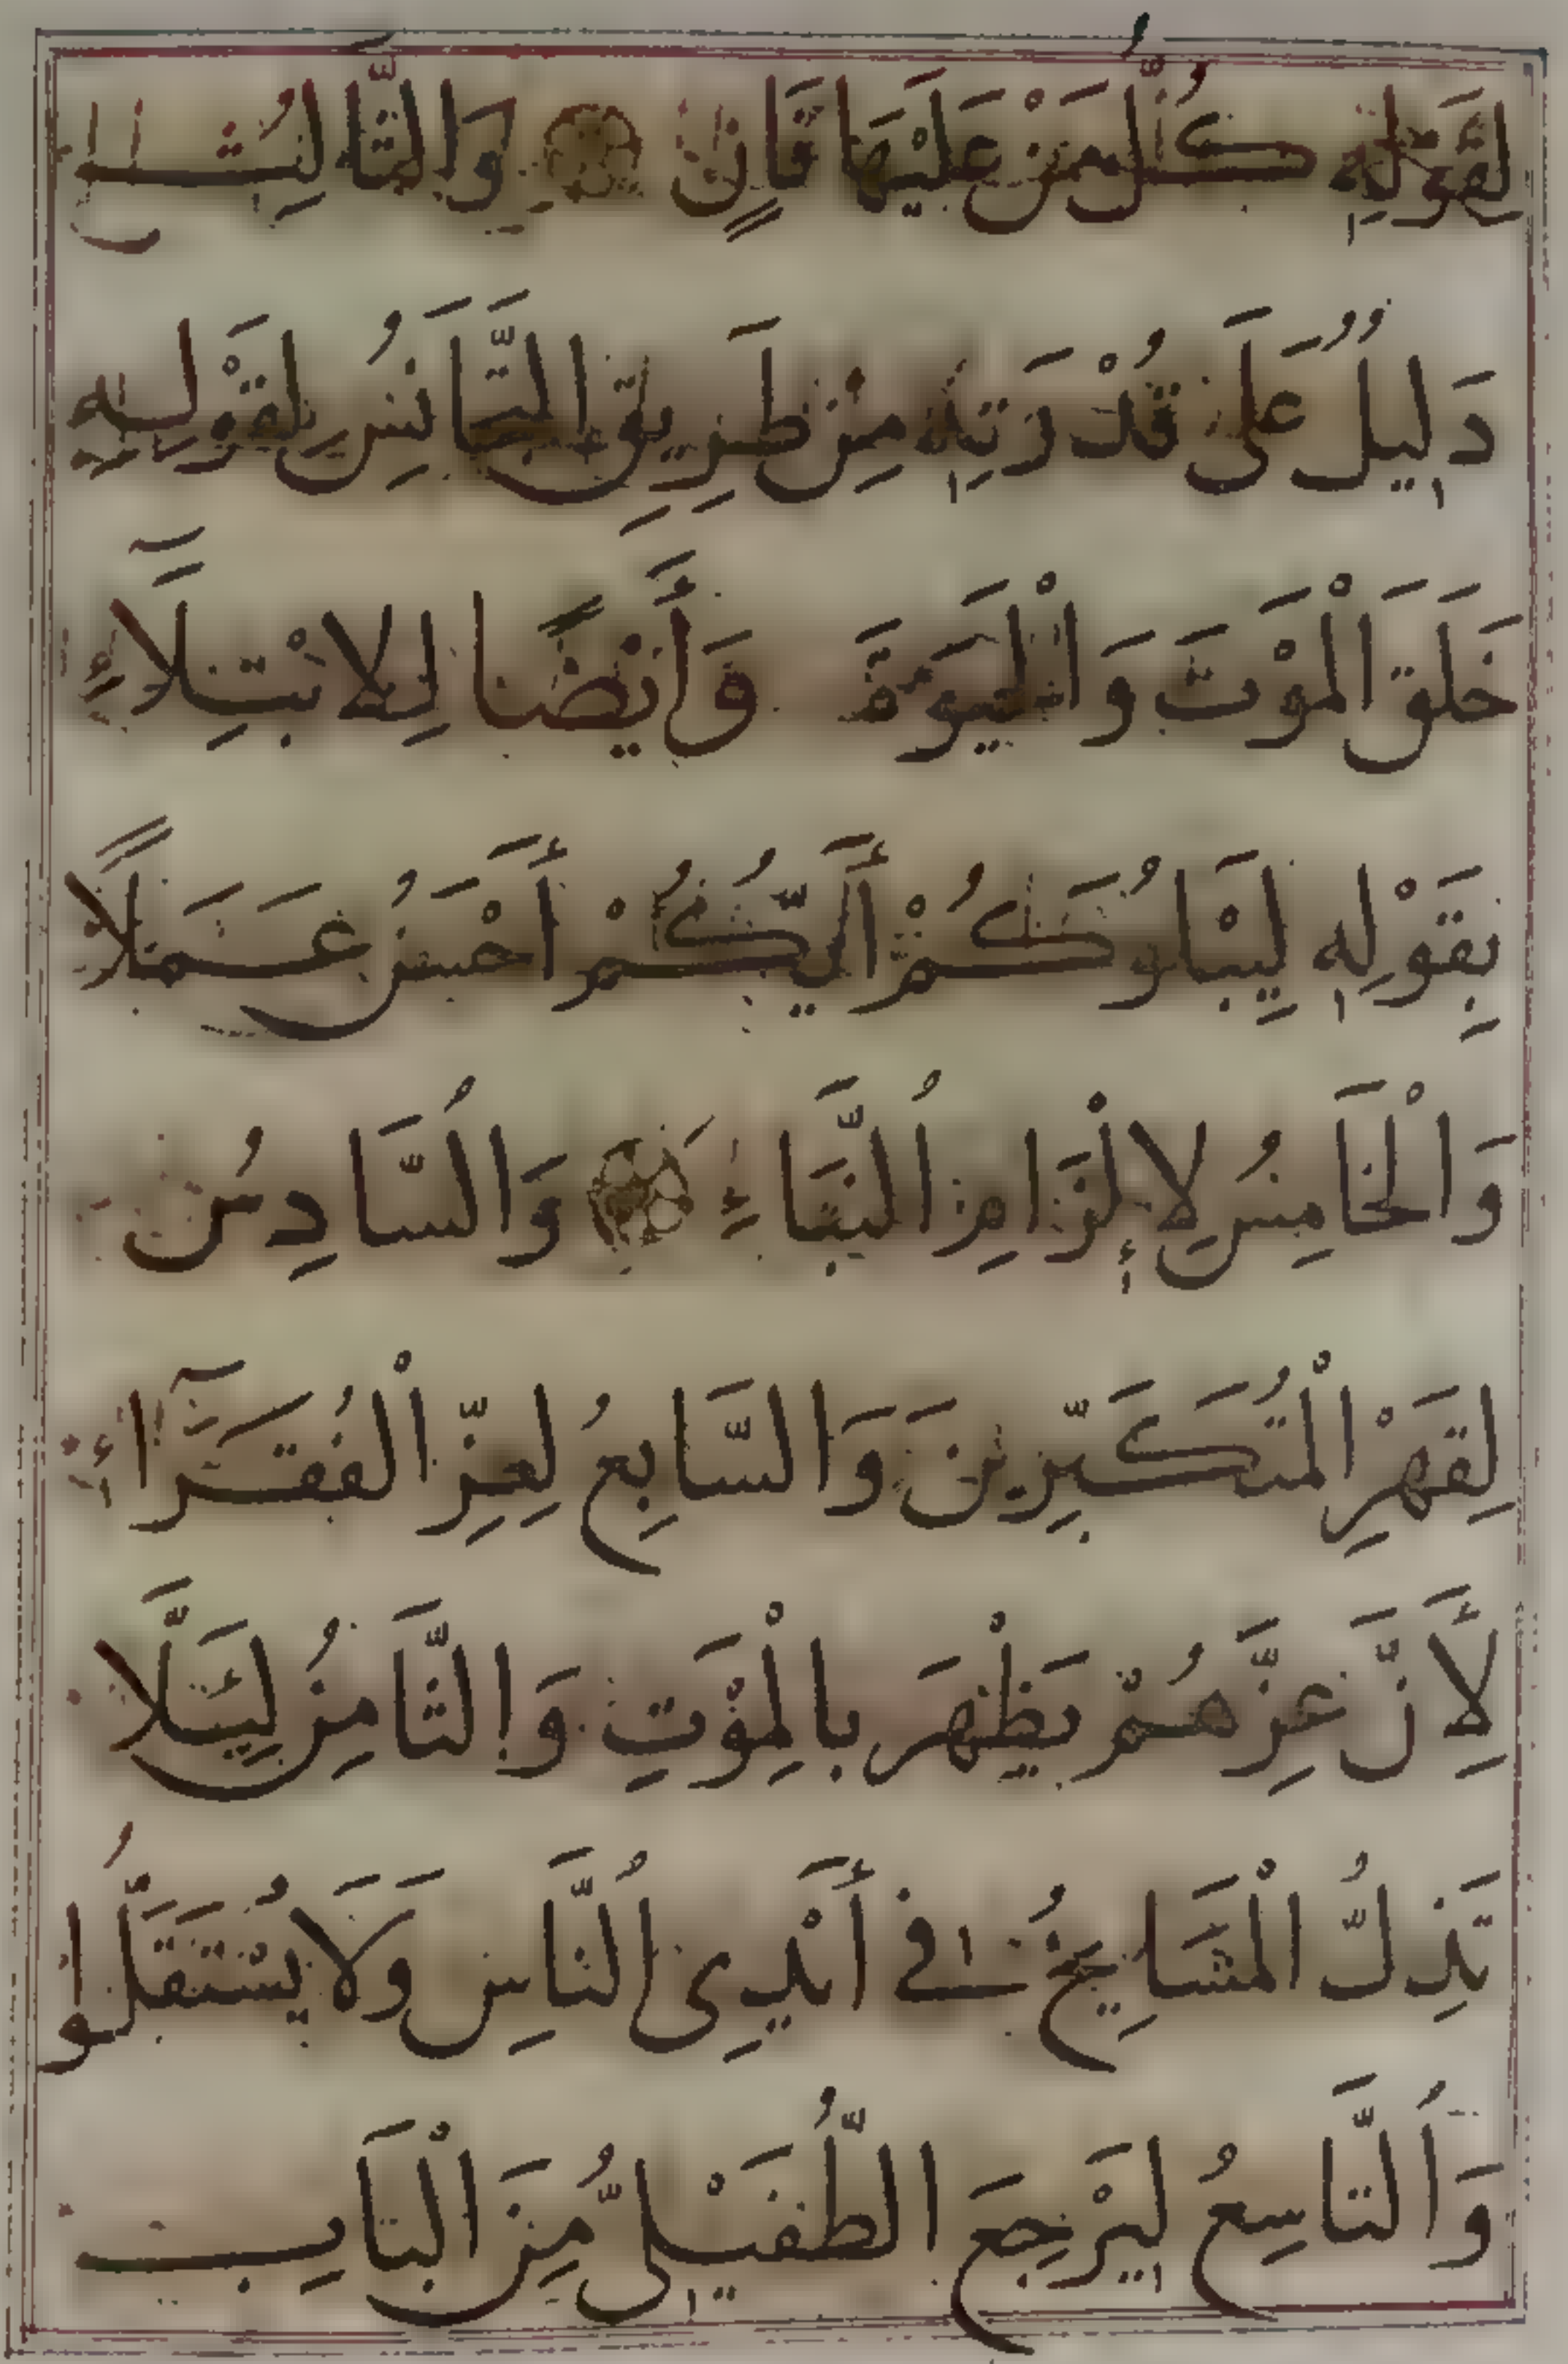 لِقَوْلِهِ كُلُّ مَنْ عَلَيْهَا فَانٍ وَالثَّالِثُ
دَلِيلٌ عَلَى قُدْرَتِهِ مِنْ طَرِيقِ لِقَوْلِهِ
خَلَقَ الْمَوْتَ وَالْحَيَوةَ وَأَيْضًا لِلابْتِلَآءِ
بِقَوْلِهِ لِيَبْلُوَكُمْ أَيُّكُمْ أَحْسَنُ عَمَلًا
وَالْخَامِسُ لِإِلْزَامِ وَالسَّادِسُ
لِقَهْرِ الْمُتَكَبِّرِينَ وَالسَّابِعُ لِعِزِّ الْفُقَرَآءِ
لِأَنَّ عِزَّهُمْ يَظْهَرُ بِالْمَوْتِ وَالثَّامِنُ لِيَلَّا
تَذِلُّ الْمَشَايِخُ فِي أَيْدِي النَّاسِ وَلَا يُسْتَقَلُّوا
وَالتَّاسِعُ لِيَرْجِعَ الطُّفَيْلِيُّ مِنَ الْبَابِ